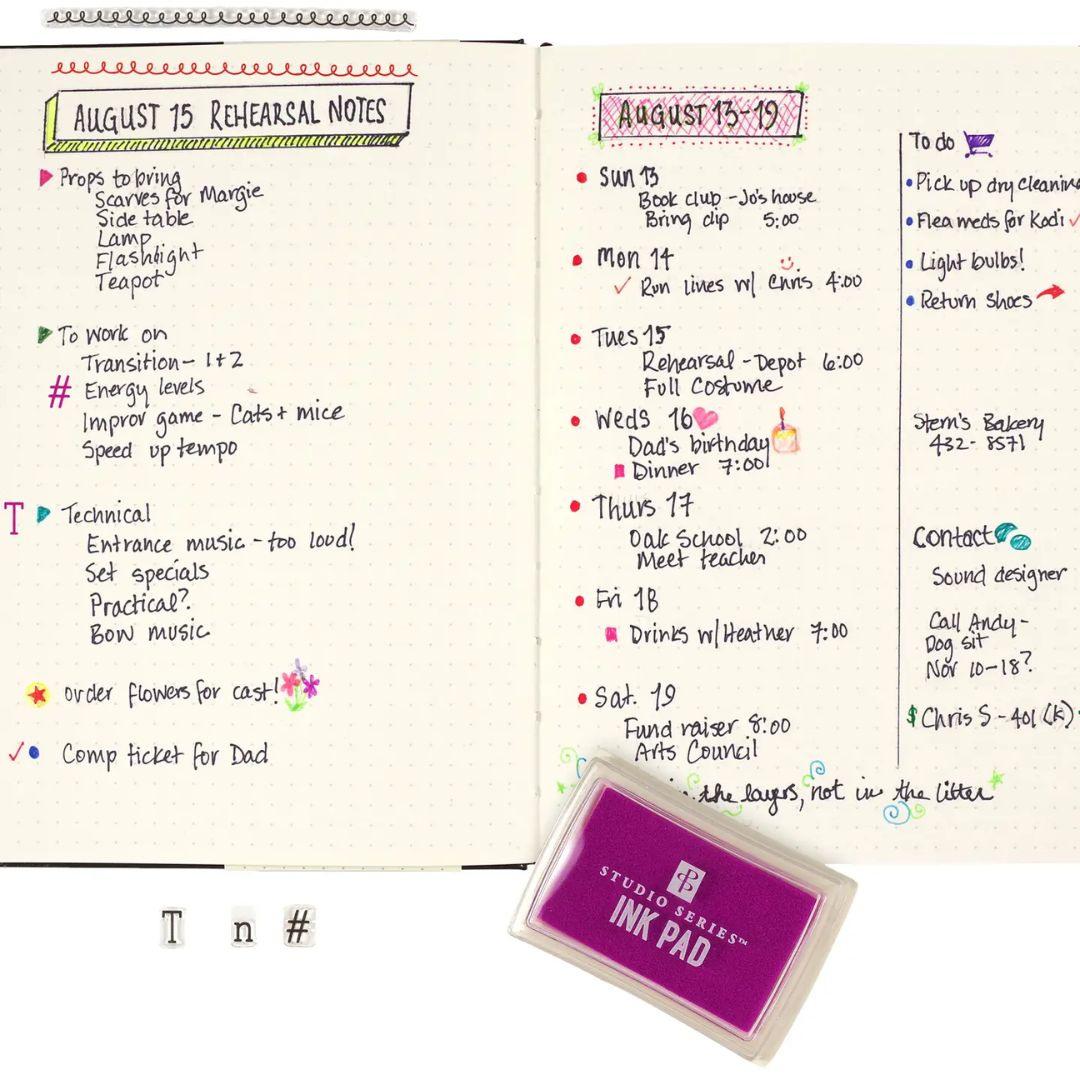 AUGUST 15 REHEARSAL NOTES
Props to bring
Scarves for Margie
Side table
Lamp
Flashlight
Teapot
To work on
Transition - 1+2
# Energy levels
Improv game - Cats + mice
Speed up tempo
T Technical
Entrance music - too loud!
Set specials
Practical?
Bow music
order flowers for cast!
Comp ticket for Dad
AUGUST 13-19
Sun 13
Book club - Jo's house
Bring dip 5:00
Mon 14
Run lines w/ Chris 4:00
Tues 15
Rehearsal - Depot 6:00
Full Costume
Weds 16
Dad's birthday
Dinner 7:00
Thurs 17
Oak School 2:00
Meet teacher
Fri 18
Drinks w/ Heather 7:00
Sat. 19
Fund raiser 8:00
Arts Council
the layers, not in the litter
To do
Pick up dry cleanin
Flea meds for Kodi
Light bulbs!
Return Shoes
Stern's Bakery
432-8571
Contact
Sound designer
Call Andy -
Dog sit
Nov 10-18?
$ Chris S - 401(k)
STUDIO SERIES™
INK PAD
T n #